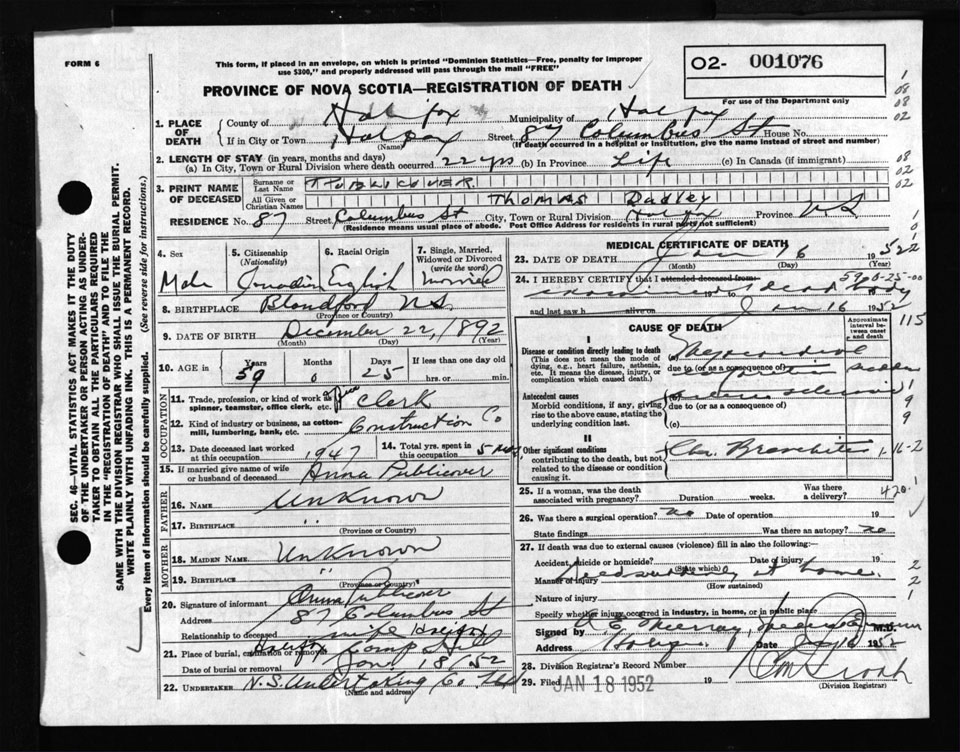 FORM 6
This form, if placed in an envelope, on which is printed "Dominion Statistics—Free, penalty for improper
use $300," and properly addressed will pass through the mail "FREE"
O2- 001076
PROVINCE OF NOVA SCOTIA—REGISTRATION OF DEATH
For use of the Department only
1. PLACE OF DEATH
County of Halifax Municipality of Halifax
If in City or Town Halifax (Name) Street 87 Columbus St House No.
(If death occurred in a hospital or institution, give the name instead of street and number)
2. LENGTH OF STAY (in years, months and days)
(a) In City, Town or Rural Division where death occurred 22 yrs (b) In Province Life (c) In Canada (if immigrant)
3. PRINT NAME OF DECEASED
Surname or Last Name PUBLICOVER.
All Given or Christian Names Thomas Dadley
RESIDENCE No. 87 Street Columbus St City, Town or Rural Division Halifax Province NS
(Residence means usual place of abode. Post Office Address for residents in rural parts not sufficient)
4. Sex Male
5. Citizenship (Nationality) Canadian
6. Racial Origin English
7. Single, Married, Widowed or Divorced (write the word) Married
8. BIRTHPLACE Blandford NS.
(Province or Country)
9. DATE OF BIRTH December 22, 1892
(Month) (Day) (Year)
10. AGE in Years 59 Months 0 Days 25 If less than one day old
hrs. or min.
OCCUPATION
11. Trade, profession, or kind of work as spinner, teamster, office clerk, etc. Clerk
12. Kind of industry or business, as cotton-mill, lumbering, bank, etc. Construction Co
13. Date deceased last worked at this occupation 1947
14. Total yrs. spent in this occupation 5
15. If married give name of wife or husband of deceased Anna Publicover
FATHER
16. NAME Unknown
17. BIRTHPLACE "
(Province or Country)
MOTHER
18. MAIDEN NAME Unknown
19. BIRTHPLACE "
(Province or Country)
20. Signature of informant Anna Publicover
Address 87 Columbus St
Relationship to deceased wife Halifax
21. Place of burial, cremation or removal Halifax Camp Hill
Date of burial or removal Jan 18/52
22. UNDERTAKER N.S. Undertaking Co Ltd
(Name and address)
MEDICAL CERTIFICATE OF DEATH
23. DATE OF DEATH Jan 16 1952
(Month) (Day) (Year)
24. I HEREBY CERTIFY that I attended deceased from:
dead body
and last saw h alive on Jan 16 1952
CAUSE OF DEATH
Approximate interval between onset and death
I
Disease or condition directly leading to death
(This does not mean the mode of dying, e.g., heart failure, asthenia, etc. It means the disease, injury, or complication which caused death.)
Myocardial
due to (or as a consequence of)
Antecedent causes
Morbid conditions, if any, giving rise to the above cause, stating the underlying condition last.
due to (or as a consequence of)
(c)
II
Other significant conditions
contributing to the death, but not related to the disease or condition causing it.
Chr. Bronchitis
25. If a woman, was the death associated with pregnancy? Duration weeks. Was there a delivery?
26. Was there a surgical operation? no Date of operation 19
State findings Was there an autopsy? no
27. If death was due to external causes (violence) fill in also the following:
Accident, suicide or homicide? (State which) Date of injury 19
Manner of injury at home.
(How sustained)
Nature of injury
Specify whether injury occurred in industry, in home, or in public place
Signed by Murray, Medical Examiner M.D.
Address Date 1952
28. Division Registrar's Record Number
29. Filed JAN 18 1952 19
(Division Registrar)
SEC. 46—VITAL STATISTICS ACT MAKES IT THE DUTY
OF THE UNDERTAKER OR PERSON ACTING AS UNDER-
TAKER TO OBTAIN ALL THE PARTICULARS REQUIRED
IN THE "REGISTRATION OF DEATH" AND TO FILE THE
SAME WITH THE DIVISION REGISTRAR WHO SHALL ISSUE THE BURIAL PERMIT.
WRITE PLAINLY WITH UNFADING INK. THIS IS A PERMANENT RECORD.
Every item of information should be carefully supplied. (See reverse side for instructions.)